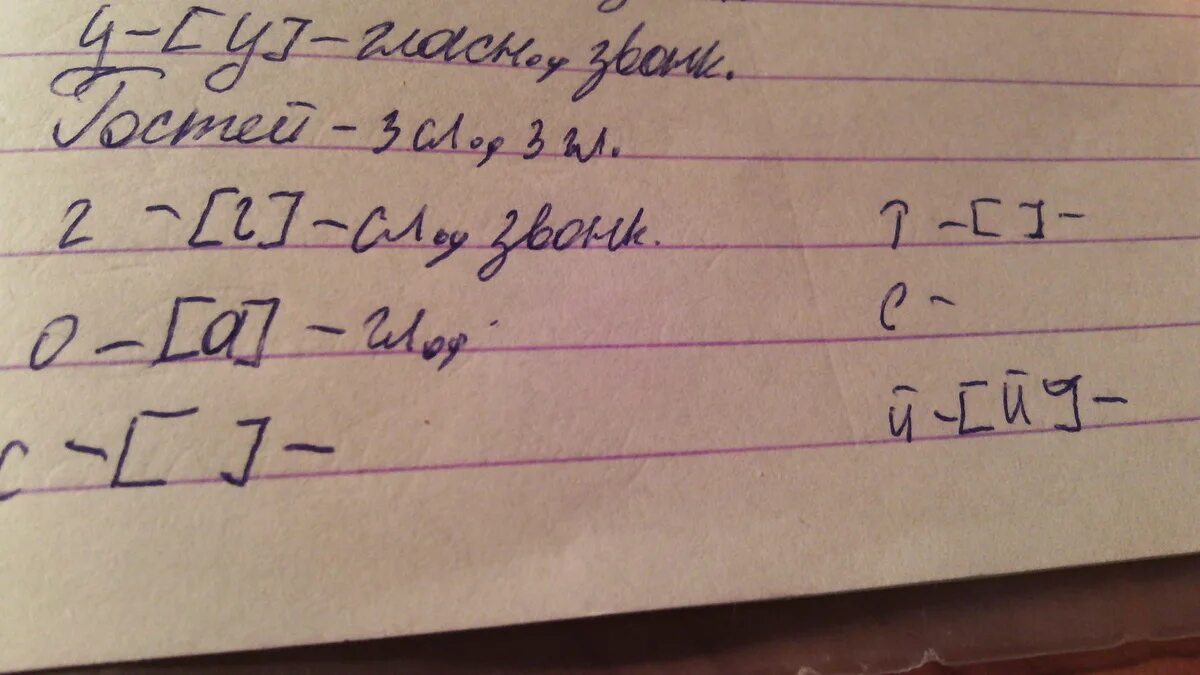 у - [у] - гласн., звонк.
Гостей - 3 сл., 3 гл.
г - [г] - сл., звонк.
о - [а] - гл.,
с - [ ] -
т - [ ] -
е -
й - [й'] -